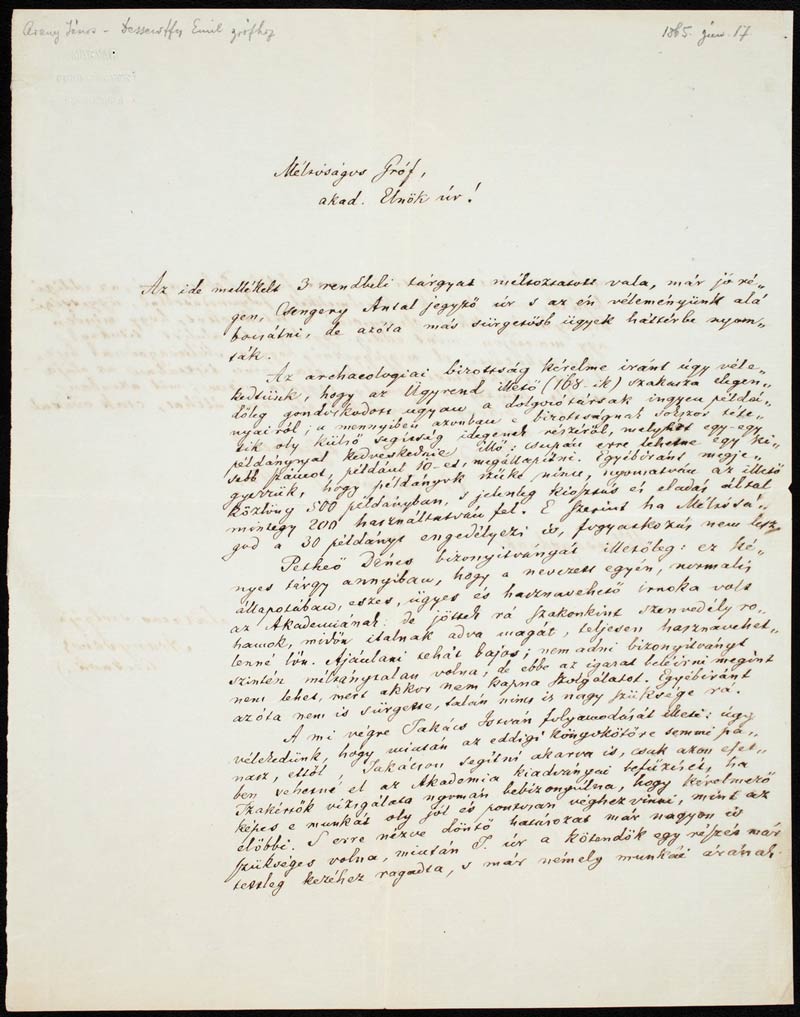 Arany János – Dessewffy Emil grófhoz
1865. jún. 17
Méltóságos Gróf,
akad. Elnök úr!
Az ide mellékelt 3 rendbeli tárgyat méltóztatott vala, már jó ré-
gen, Csengery Antal jegyző úr s az én véleményünk alá
bocsátni, de azóta más sürgetősb ügyek háttérbe nyom-
ták.
Az archaeologiai bizottság kérelme iránt úgy véle-
kedtünk, hogy az Ügyrend illető (168-ik) szakasza elegen-
dőleg gondoskodott ugyan a dolgozótársak ingyen példá-
nyairól; a mennyiben azonban e bizottságnak
tik oly külső segítség idegenek részéről, melyért egy-egy
példánynyal kedveskednie illő: csupán erre lehetne egy ki-
sebb számot, például 10-et, megállapítni. Egyébiránt megje-
gyezzük, hogy példányok szűke nincs, nyomatván az illető
közlöny 500 példányban, s jelenleg kiosztás és eladás által
mintegy 200 használtatván fel. E szerint ha Méltósá-
god a 30 példányt engedélyezi is, fogyatkozás nem lesz.
Petkeö Dénes bizonyítványát illetőleg: ez ké-
nyes tárgy annyiban, hogy a nevezett egyén, normalis
állapotában, eszes, ügyes és hasznavehető irnoka volt
az Akademiának: de jöttek rá szakonkint szenvedély ro-
hamok, midőn italnak adva magát, teljesen hasznavehet-
lenné lőn. Ajánlani tehát bajos; nem adni bizonyítványt
szintén méltánytalan volna; de ebbe az igazat beleírni megint
nem lehet, mert akkor nem kapna szolgálatot. Egyébiránt
azóta nem is sürgette, talán nincs is nagy szüksége rá.
A mi végre Takács István folyamodását illeti: úgy
vélekedünk, hogy miután az eddigi könyvkötőre semmi pa-
nasz, ettől, Takácson segítni akarva is, csak azon eset-
ben vehetné el az Akademia kiadványai befűzését, ha
szakértők vizsgálata nyomán bebizonyúlna, hogy kérelmező
képes e munkát oly jól és pontosan véghezvinni, mint az
előbbi. S erre nézve döntő határozat már nagyon is
szükséges volna, miután T. úr a kötendők egy részét már
tettleg kezéhez ragadta, s már némely munkái árának